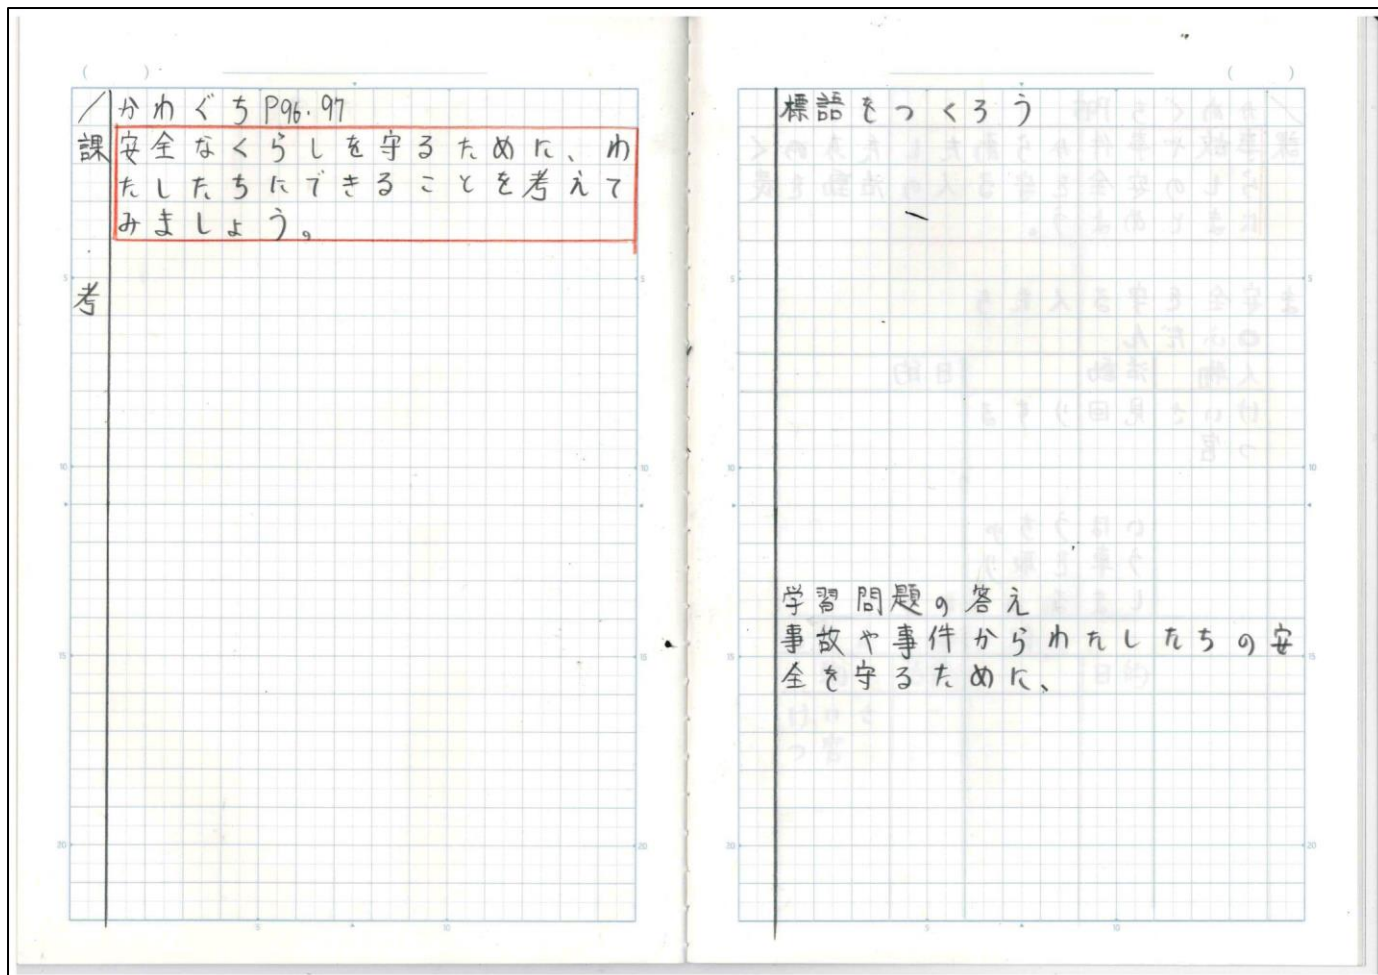 / かわぐちP96.97
課 安全なくらしを守るために、わ
たしたちにできることを考えて
みましょう。
考
標語をつくろう
学習問題の答え
事故や事件からわたしたちの安
全を守るために、